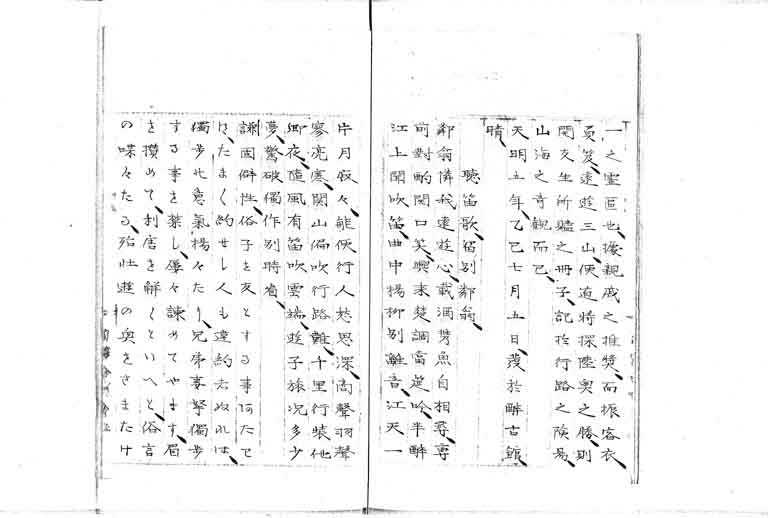 一之霊區也、擾親戚之推奬、而振客衣
負笈遠遊三山、便道将探陸奥之勝、則
関友生所贐之冊子、記於行路之険易、
山海之奇観而已、
天明五年、乙巳七月五日、發於酔古館、
晴、
聴笛歌、留別鄰翁、
鄰翁憐我遠遊心、載酒芳魚自相尋、専
前對酌開口笑、興来楚調當筵吟、半酔
江上聞吹笛、曲中楊柳別離音、江天一
片月寂々、能使行人愁思深、高聲羽聲
寥亮寒、関山偏吹行路難、十里行装他
郷夜、随風有笛吹雲端、遊子旅况多少
夢、驚破獨作別時看、
謙固僻性、俗子を友とする事河たて
は、たまく約せし人も違約云ぬれは、
獨歩此意氣揚々たり、兄弟妻孥獨歩
する事を禁し、屡々諫めてやます、眉
を攅めて、利害を解くといへと、俗言
の喋々たる、殆壮遊の奥をさまたけ